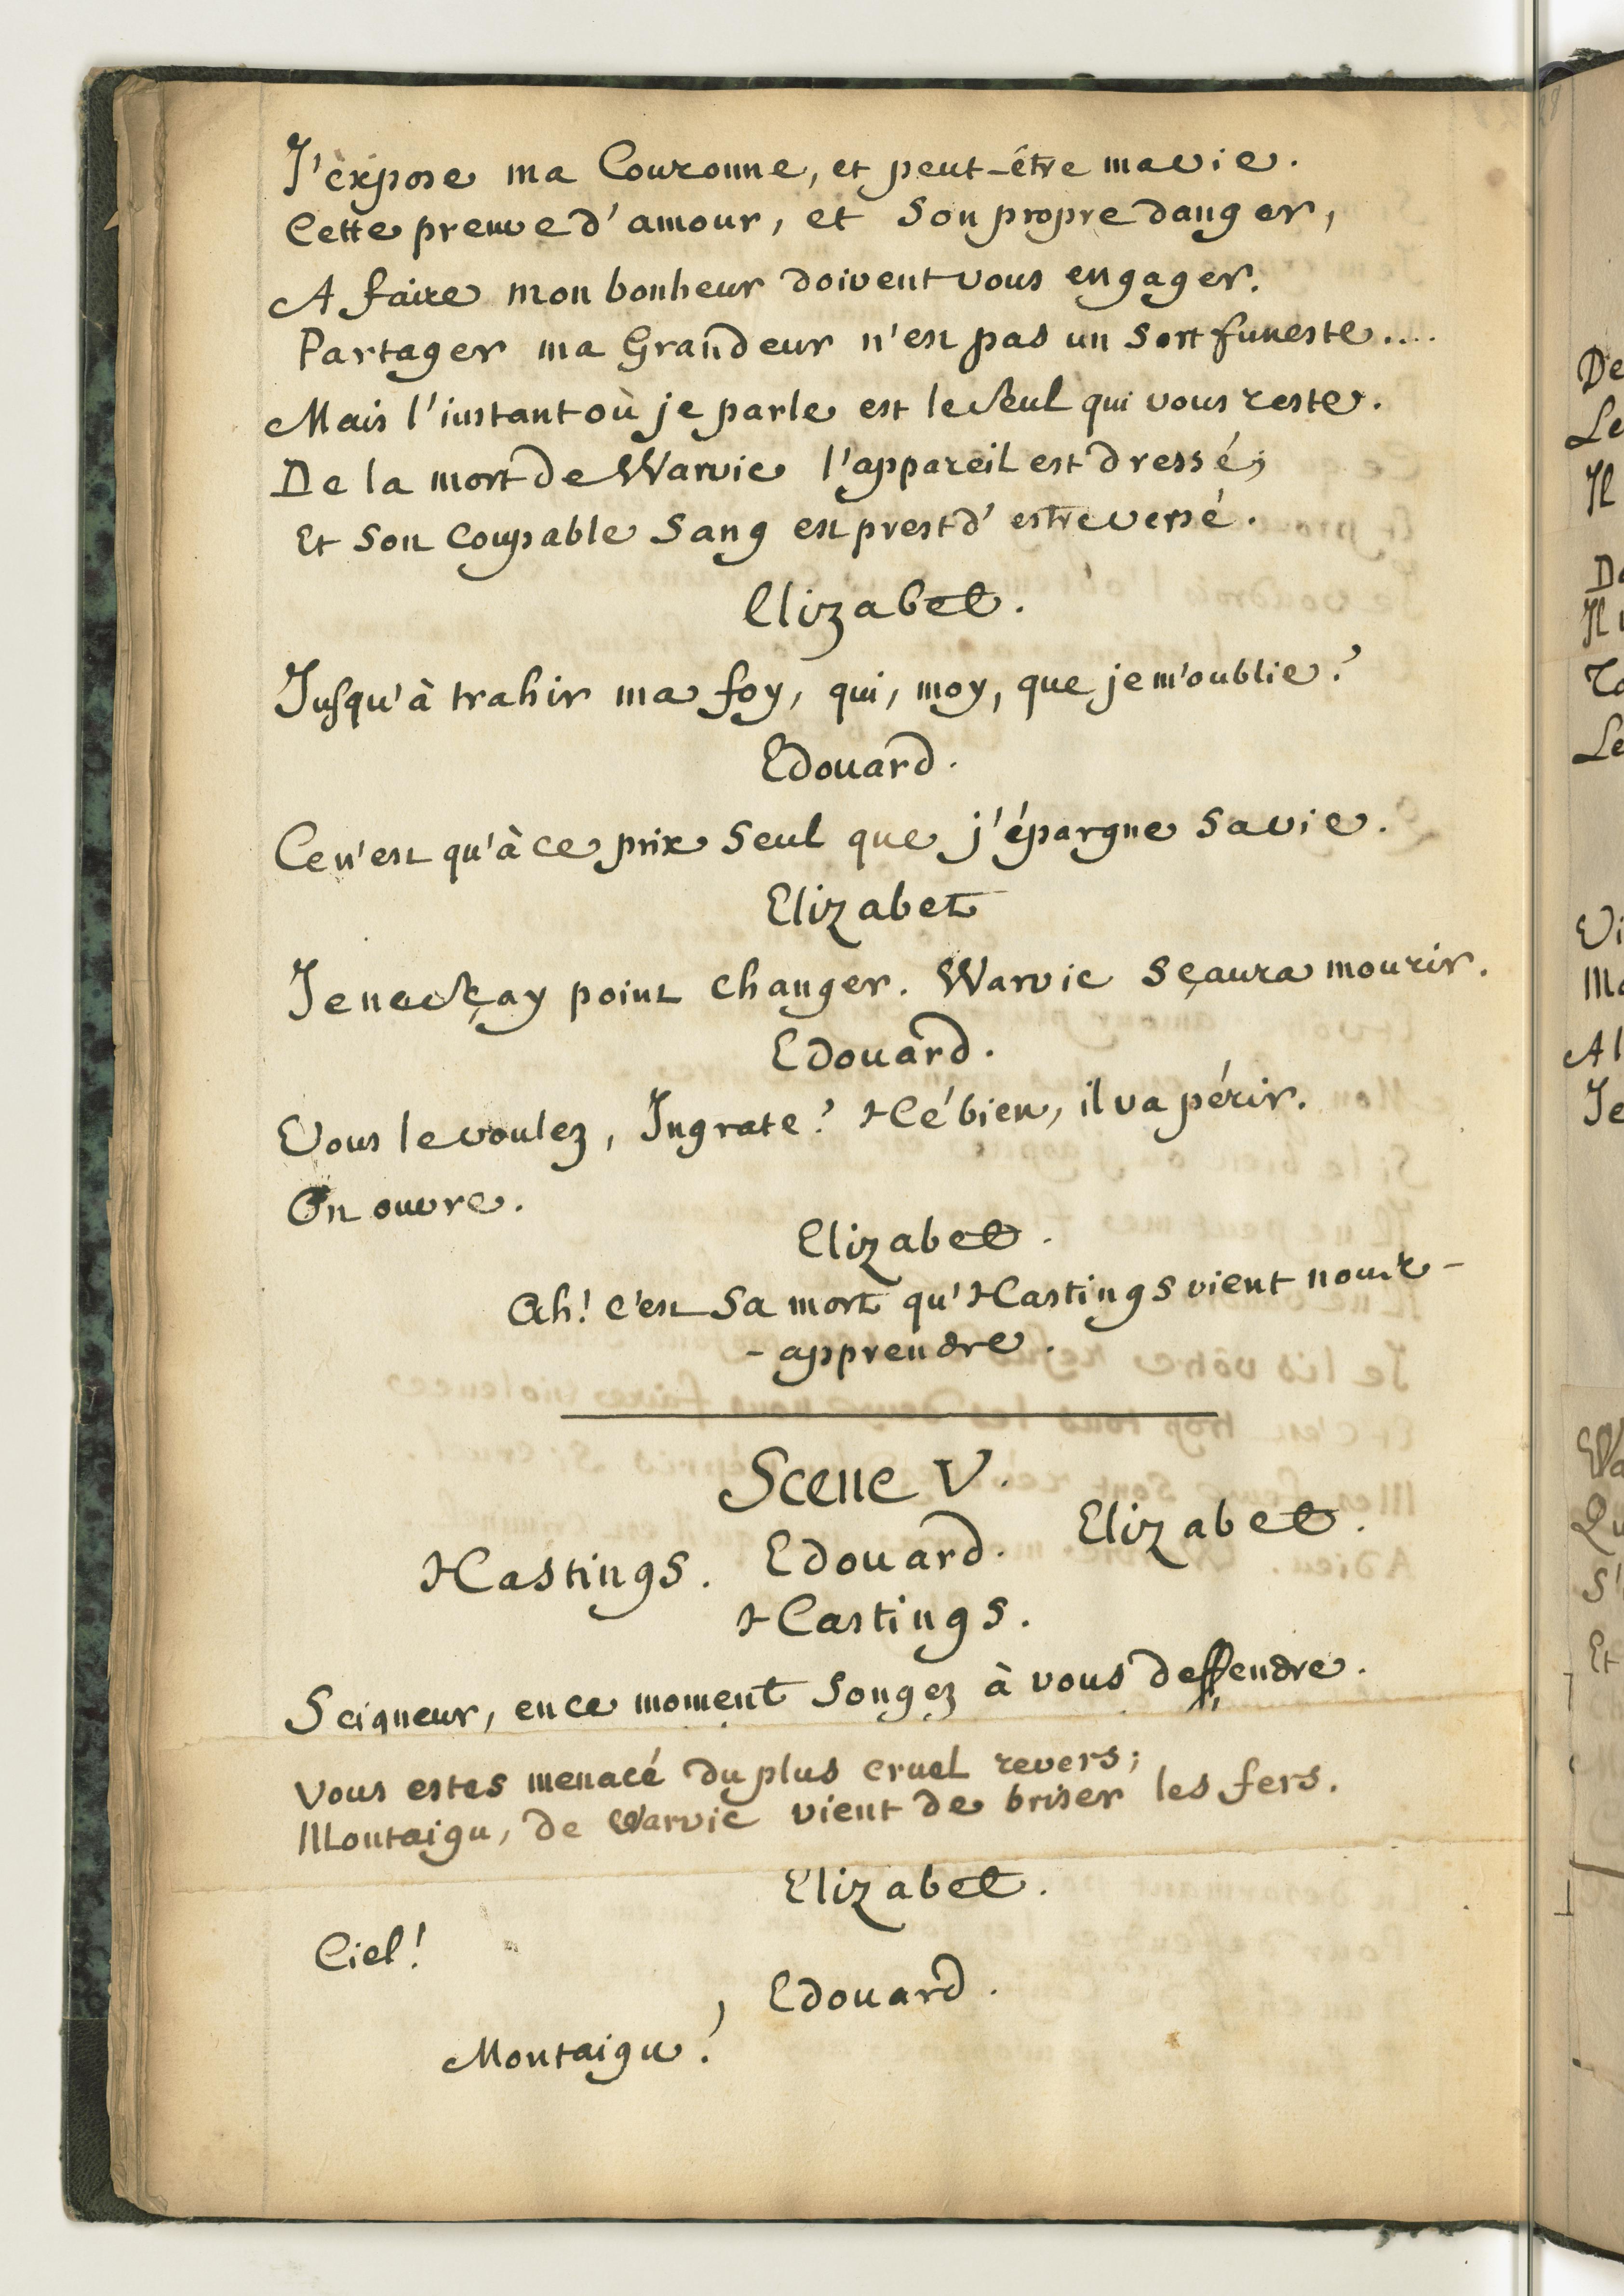 J'éxpose ma Couronne, et peut-étre ma vie.
Cette preuve d'amour, et son propre danger,
A faire mon bonheur doivent vous engager.
Partager ma Grandeur n'est pas un sort funeste....
Mais l'instant où je parle est le seul qui vous reste.
De la mort de Warvic l'appareil est dressé;
Et son coupable sang est prest d'estre versé.
Elizabet.
Jusqu'à trahir ma foy, qui, moy, que je m'oublie?
Edouard.
Ce n'est qu'à ce prix seul que j'épargne sa vie.
Elizabet
Je ne sçay point changer. Warvic sçaura mourir.
Edouard.
Vous le voulez, Ingrate? Hé bien, il va périr.
On ouvre.
Elizabet.
Ah! c'est sa mort qu'Hastings vient nous-
-apprendre.
Scene V.
Hastings. Edouard. Elizabet.
Hastings.
Seigneur, en ce moment songez à vous deffendre.
Vous estes menacé du plus cruel revers;
Montaigu, de Warvic vient de briser les fers.
Elizabet.
Ciel!
Edouard.
Montaigu?
De
Le
Il
Le
Vi
Ma
Al
Je
Wa
Qu
S'
Et